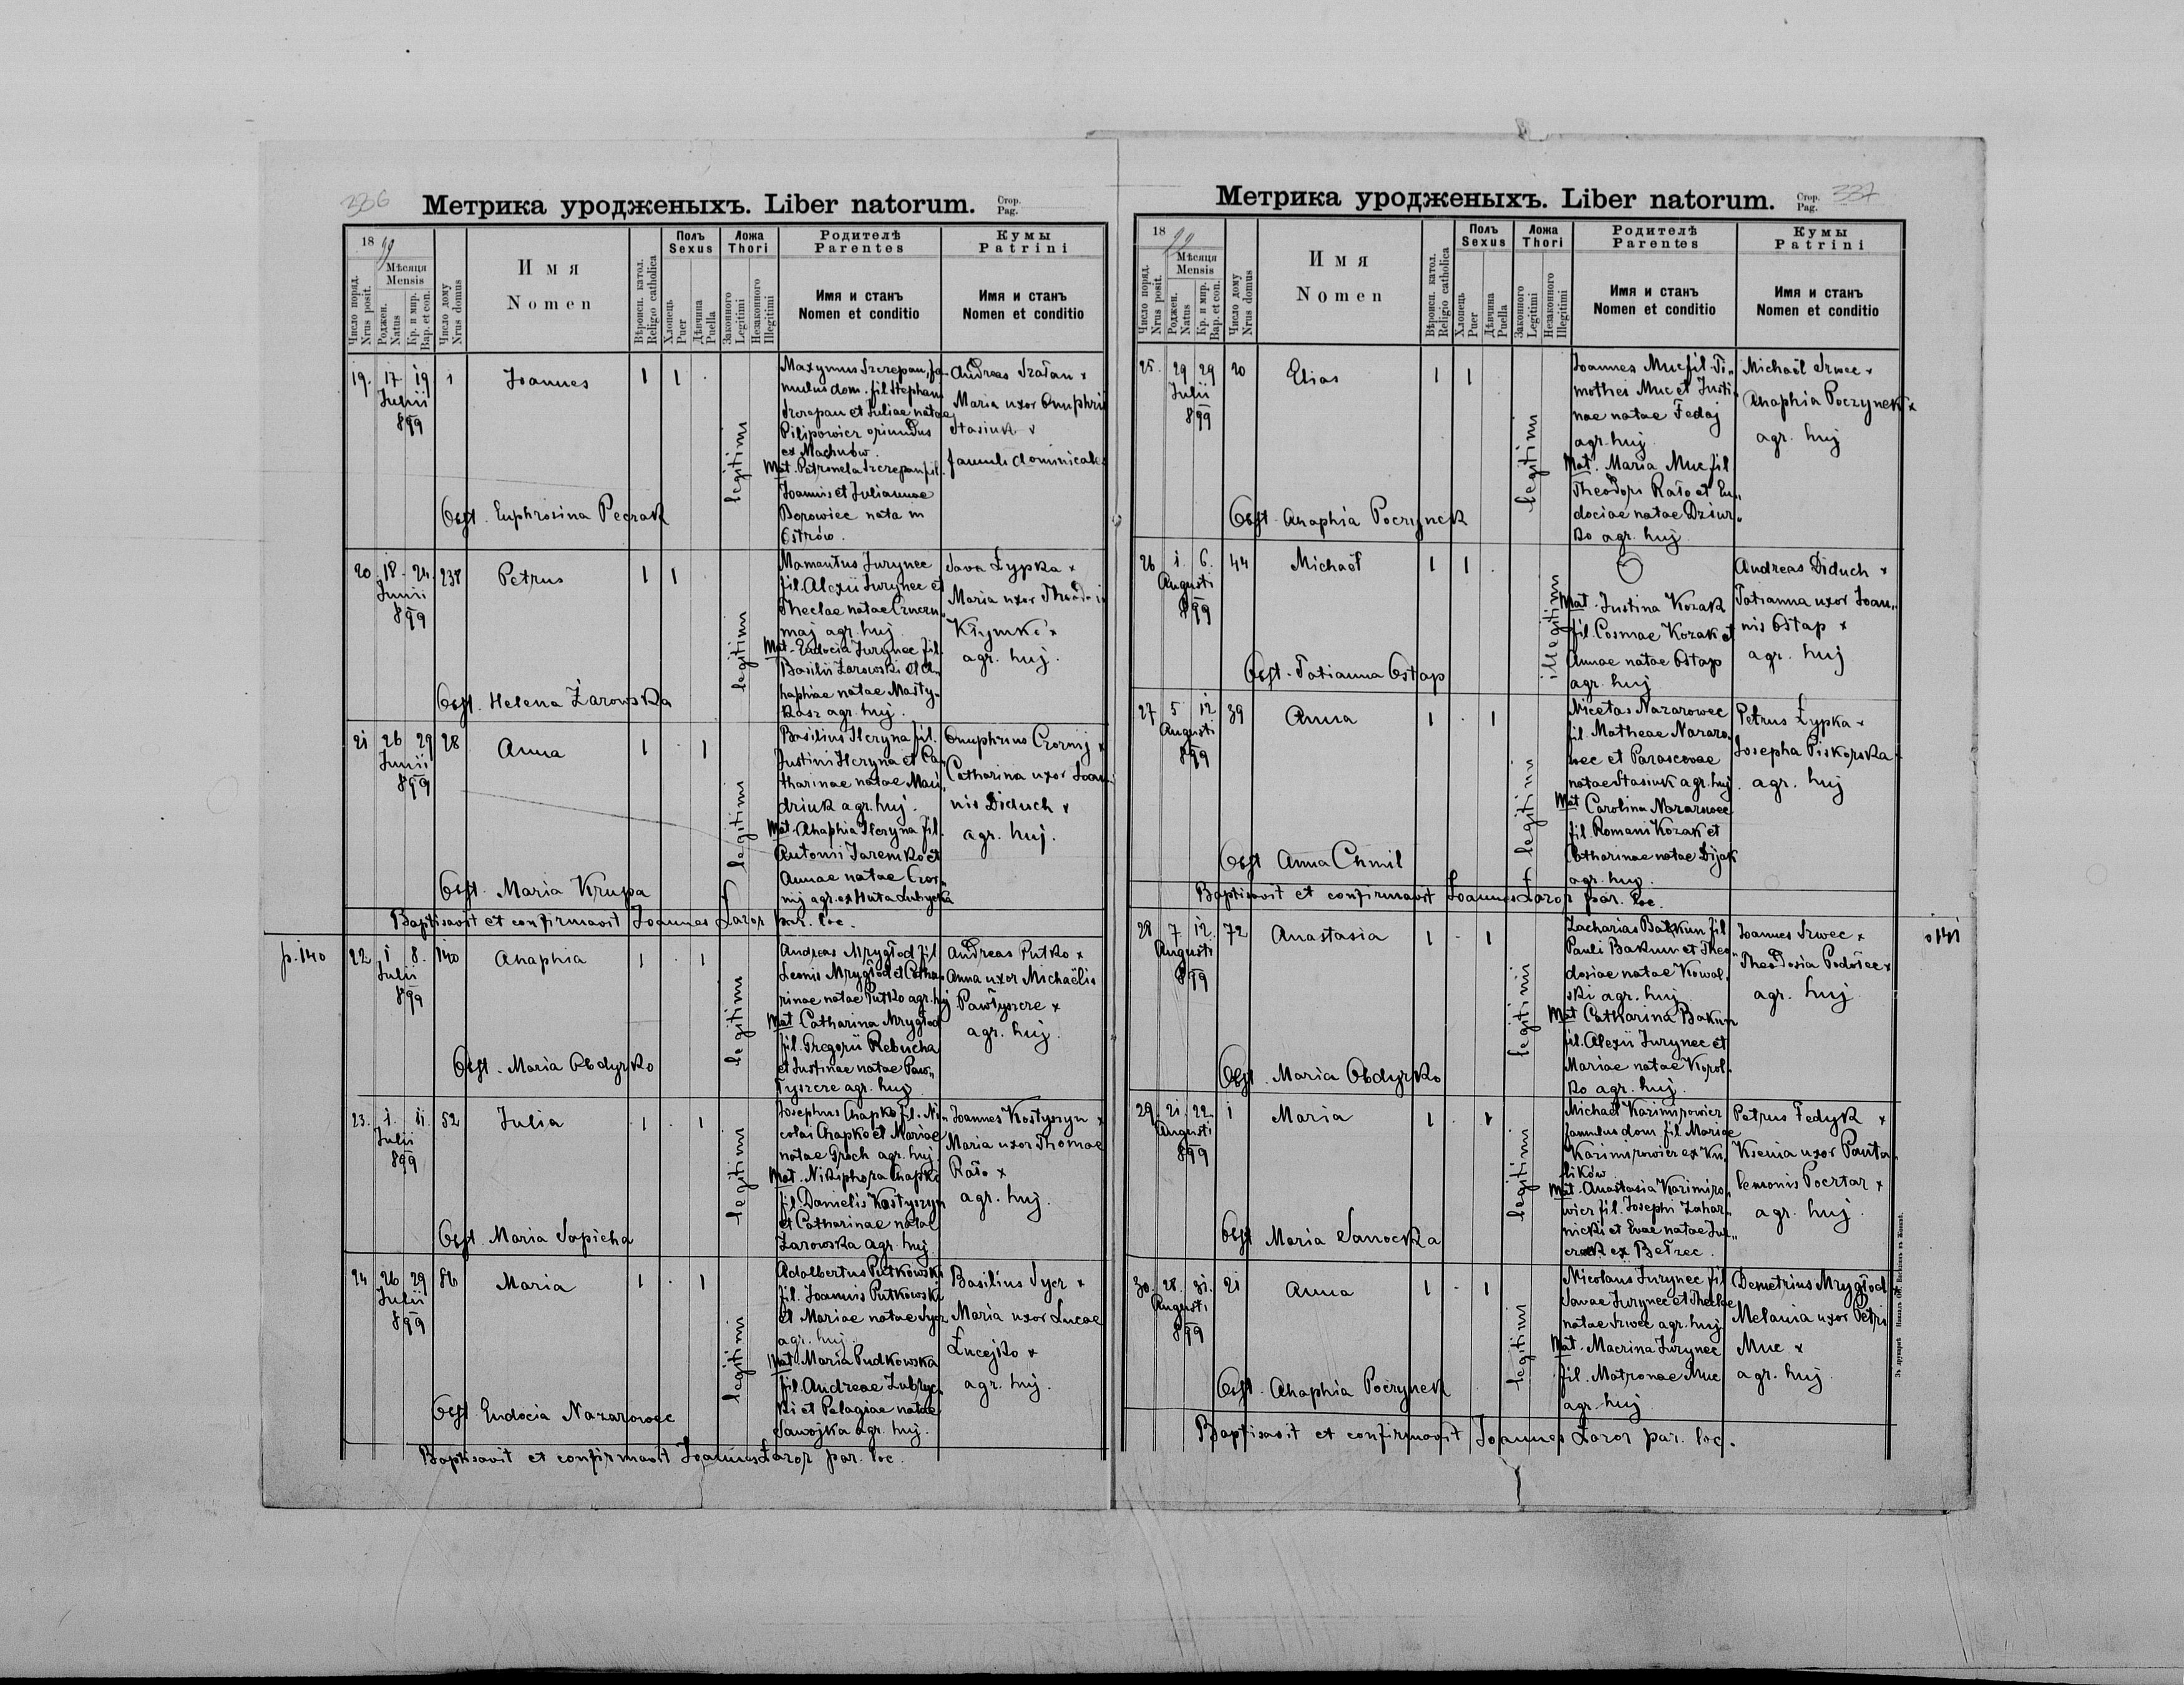 336
Метрика уродженыхъ. Liber natorum. Стор. Pag.
18 99
Число поряд. Nrus posit.
Мѣсяця Mensis
Роджен. Natus
Кр. и мир. Bap. et con.
Число дому Nrus domus
Имя
Nomen
Вѣроисп. катол. Religio catholica
Полъ
Sexus
Хлопець Puer
Дѣвчина Puella
Ложа
Thori
Законного Legitimi
Незаконного Illegitimi
Родителѣ
Parentes
Имя и станъ
Nomen et conditio
Кумы
Patrini
Имя и станъ
Nomen et conditio
19. 17 19 1 Joannes 1 1 .
Julii
899
legitimi
Maxymus Szczepan, fa-
mulus dom. fil Stephani
Szczepan et Juliae natae
Pilipowicz oriundus
ex Machnów.
Mat. Petronela Szczepan fil.
Joannis et Juliannae
Borowiec nata in
Ostrów.
Andreas Szałan x
Maria uxor Onuphrii
Stasiuk x
famuli dominicales
Obst. Euphrosina Peczak
20 18 24 237 Petrus 1 1
Junii
899
legitimi
Mamantus Jurynec
fil. Alexii Jurynec et
Theclae natae
maj agr. huj.
Mat. Eudocia Jurynec fil.
Basilii Żarowski et A-
haphiae natae Masty-
kasz agr. huj.
Sava Łypka x
Maria uxor
Kłymko x
agr. huj.
Obst. Helena Żarowska
21 26 29 28 Anna 1 . 1
Junii
899
legitimi
Basilius Heryna fil.
Justini Heryna et Ca-
tharinae natae Man-
driuk agr. huj.
Mat. Ahaphia Heryna fil.
Antonii Jaremko et
Annae natae Czor-
nij agr. ex Huta Lubycka
Onuphrius Czornij x
Catharina uxor Joan-
nis Diduch x
agr. huj.
Obst. Maria Krupa
Baptisavit et confirmavit Joannes Łazor par. loc.
p. 140
22 1 8. 140 Ahaphia 1 . 1
Julii
899
legitimi
Andreas Mrygłod fil
Leonis Mrygłod et Catha-
rinae natae Putko agr. huj
Mat Catharina Mrygłod
fil. Gregorii Rebucha
et Justinae natae Paw-
łyszcze agr. huj
Andreas Putko x
Anna uxor Michaëlis
Pawłyszcze x
agr. huj.
Obst. Maria Obdyrko
23. 1. 11. 52 Julia 1 . 1
Julii
899
legitimi
Josephus Chapko fil. Ni-
colai Chapko et Mariae
natae Groch agr. huj.
Mat. Nikiphora Chapko
fil. Danielis Kostyszyn
et Catharinae natae
Żarowska agr. huj.
Joannes Kostyszyn x
Maria uxor Thomae
Rało x
agr. huj.
Obst Maria Sapieha
24 26 29 86 Maria 1 . 1
Julii
899
legitimi
Adalbertus Putkowski
fil. Joannis Putkowski
et Mariae natae Sycz
agr. huj.
Mat. Maria Pudkowska
fil. Andreae Zubryc-
ki et Pelagiae natae
Sawojka agr. huj.
Basilius Sycz x
Maria uxor Lucae
Łucejko x
agr. huj.
Obst Eudocia Nazarowec
Baptisavit et confirmavit Joannes Łazor par. loc.
Метрика уродженыхъ. Liber natorum. Стор. Pag. 337
18 99
Число поряд. Nrus posit.
Мѣсяця Mensis
Роджен. Natus
Кр. и мир. Bap. et con.
Число дому Nrus domus
Имя
Nomen
Вѣроисп. катол. Religio catholica
Полъ
Sexus
Хлопець Puer
Дѣвчина Puella
Ложа
Thori
Законного Legitimi
Незаконного Illegitimi
Родителѣ
Parentes
Имя и станъ
Nomen et conditio
Кумы
Patrini
Имя и станъ
Nomen et conditio
25. 29 29 20 Elias 1 1
Julii
899
legitimi
Joannes Muc fil. Ti-
mothei Muc et Justi-
nae natae Fedaj
agr. huj.
Mat. Maria Muc fil
Theodori Rało et Eu-
dociae natae Dziur-
ko agr. huj
Michaël Irwec x
Ahaphia Poczynek x
agr. huj
Obst. Ahaphia Poczynek
26 1. 6. 44 Michaël 1 1 .
Augusti
899
illegitimi
Mat. Justina Kozak
fil. Cosmae Kozak et
Annae natae Ostap
agr. huj
Andreas Diduch x
Tatianna uxor Joan-
nis Ostap x
agr. huj
Obst. Tatianna Ostap
27 5 12 39 Anna 1 . 1
Augusti
899
legitimi
Nicetas Nazarowec
fil. Matheae Nazaro-
wec et Parascevae
natae Stasiuk agr. huj.
Mat Carolina Nazarowec
fil. Romani Kozak et
Catharinae natae Dijak
agr. huj.
Petrus Łypka x
Josepha Piskorska x
agr. huj
Obst Anna Chmil
Baptisavit et confirmavit Joannes Łazor par. loc.
28 7 12. 72 Anastasia 1 . 1
Augusti
899
legitimi
Zacharias Bakun fil
Pauli Bakun et Theo-
dosiae natae Kowal-
ski agr. huj
Mat Catharina Bakun
fil. Alexii Jurynec et
Mariae natae Korol-
ko agr. huj.
Joannes Irwec x
Theodosia Podolec x
agr. huj
p 141
Obst. Maria Obdyrko
29. 21. 22. 1 Maria 1 . 1
Augusti
899
legitimi
Michael Kazimirowicz
famulus dom fil Mariae
Kazimirowicz ex Ku-
lików
Mat. Anastasia Kazimiro-
wicz fil. Josephi Zahar-
nicki et Evae natae Jur-
czak ex Bełzec.
Petrus Fedyk x
Ksenia uxor Panta-
lemonis Pocztar x
agr. huj.
Obst Maria Sanocka
30. 28. 31. 21 Anna 1 . 1
Augusti
899
legitimi
Nicolaus Jurynec fil
Savae Jurynec et Theclae
natae Irwec agr. huj
Mat. Macrina Jurynec
fil. Matronae Muc
agr. huj
Demetrius Mrygłod x
Melania uxor Petri
Muc x
agr. huj
Obst. Ahaphia Poczynek
Baptisavit et confirmavit Joannes Łazor par. loc.